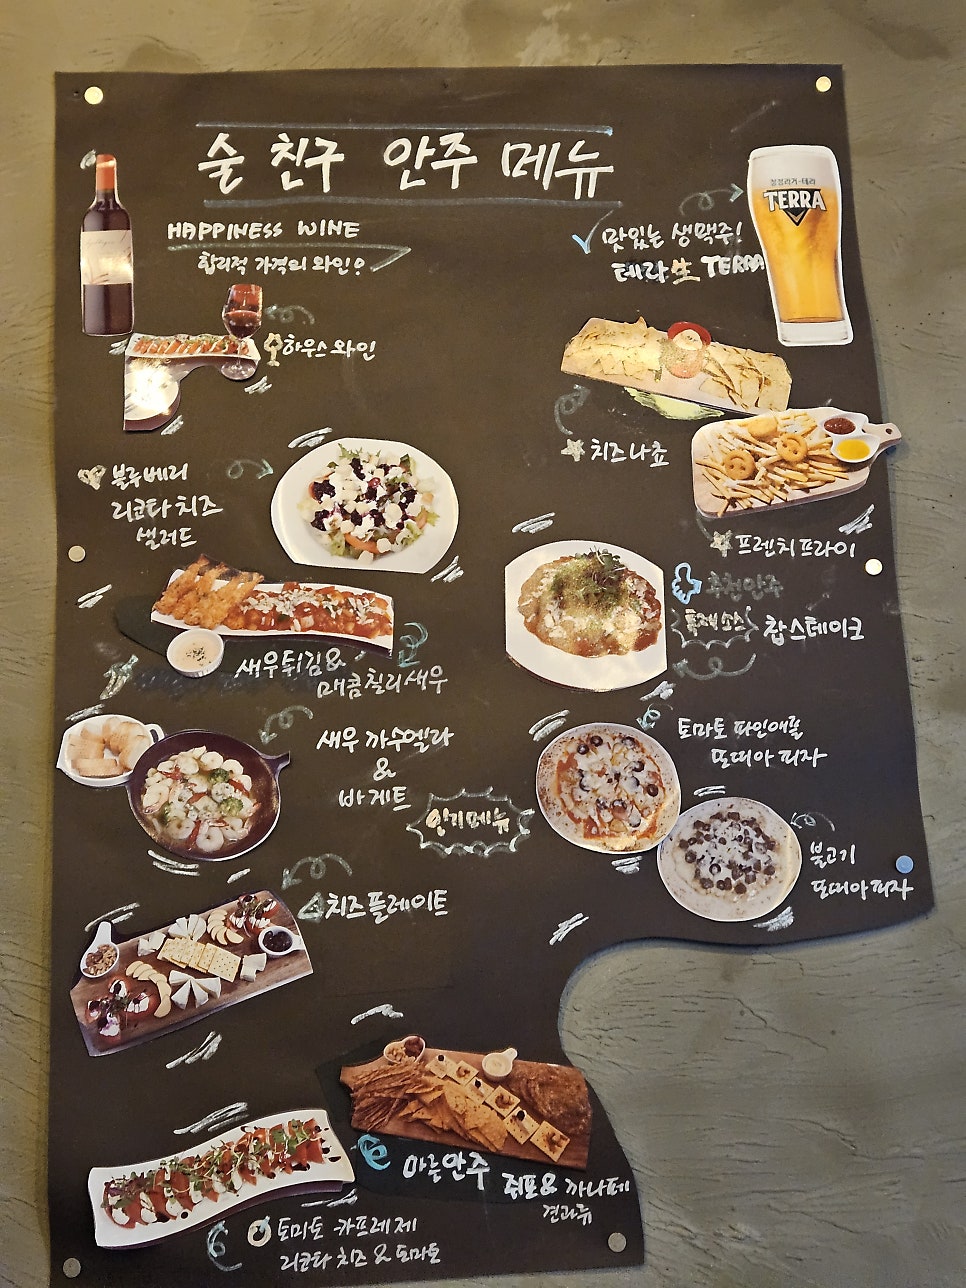 술 친구 안주 메뉴
HAPPINESS WINE
합리적 가격의 와인?
하우스 와인
청정라거-테라
TERRA
맛있는 생맥주!
테라生 TERRA
치즈나쵸
프렌치프라이
블루베리
리코타 치즈
샐러드
추천안주
특제소스
찹스테이크
새우튀김&
매콤칠리새우
새우 까수엘라
&
바게트
인기메뉴
토마토 파인애플
또띠아 피자
불고기
또띠아피자
치즈플레이트
마른안주
쥐포& 까나페
견과류
토마토 카프레제
리코타 치즈 & 토마토